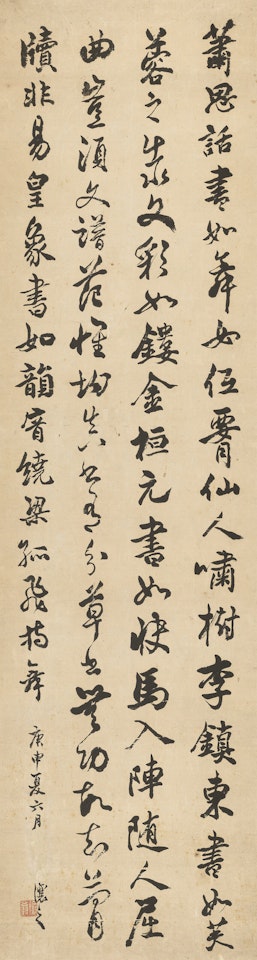 蕭思話書如舞女低腰仙人嘯樹李鎮東書如芙
蓉之出水文彩如鏤金桓元書如快馬入陣隨人屈
曲豈須文譜范惟均真書有分草書無功故知簡
牘非易皇象書如韻音繞梁孤飛獨舞
庚申夏六月 讓之